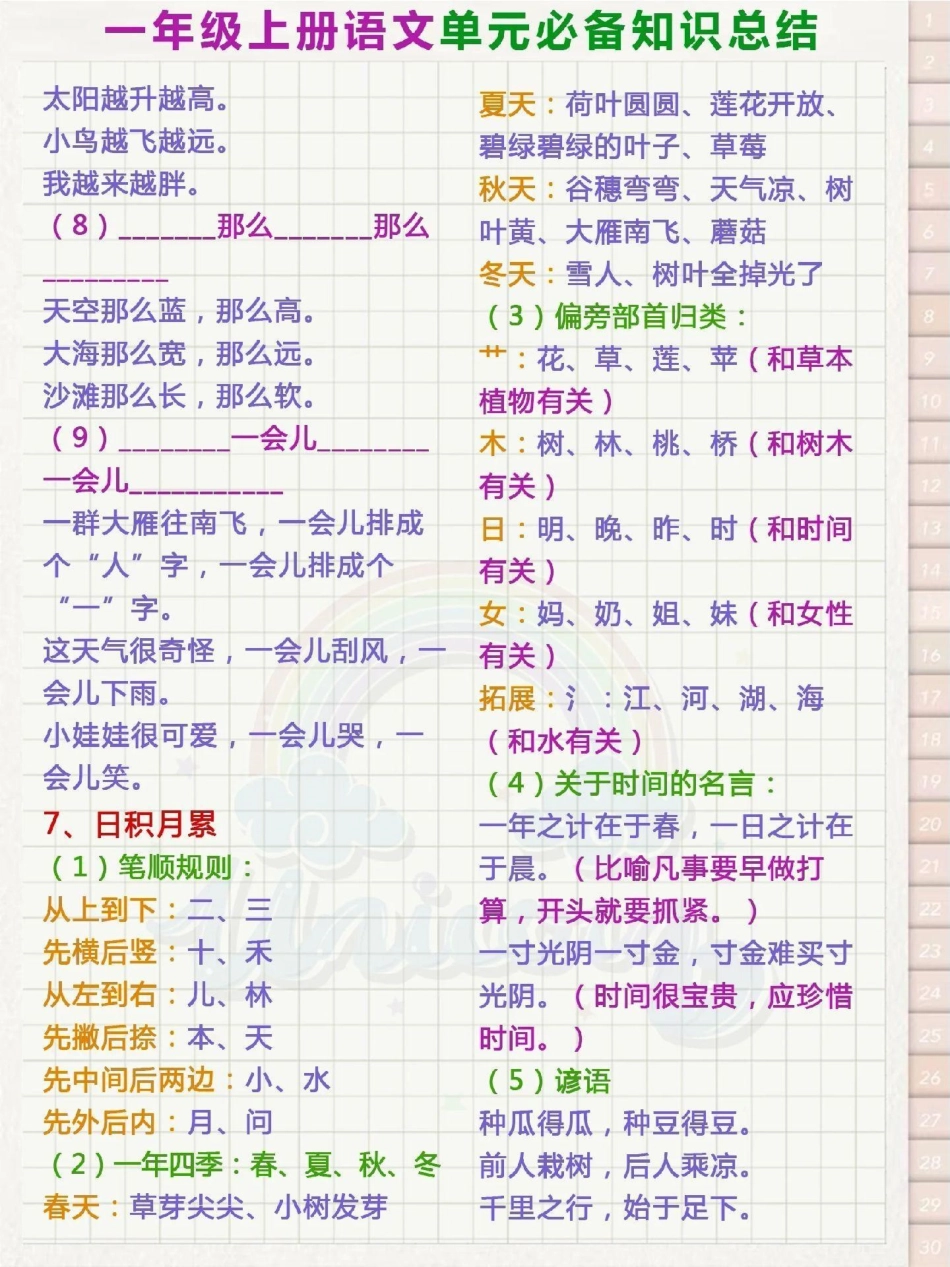 一年级上册语文单元必备知识总结
太阳越升越高。
小鸟越飞越远。
我越来越胖。
（8）_______那么_______那么
_________
天空那么蓝，那么高。
大海那么宽，那么远。
沙滩那么长，那么软。
（9）________一会儿________
一会儿___________
一群大雁往南飞，一会儿排成
个“人”字，一会儿排成个
“一”字。
这天气很奇怪，一会儿刮风，一
会儿下雨。
小娃娃很可爱，一会儿哭，一
会儿笑。
7、日积月累
（1）笔顺规则：
从上到下：二、三
先横后竖：十、禾
从左到右：儿、林
先撇后捺：本、天
先中间后两边：小、水
先外后内：月、问
（2）一年四季：春、夏、秋、冬
春天：草芽尖尖、小树发芽
夏天：荷叶圆圆、莲花开放、
碧绿碧绿的叶子、草莓
秋天：谷穗弯弯、天气凉、树
叶黄、大雁南飞、蘑菇
冬天：雪人、树叶全掉光了
（3）偏旁部首归类：
艹：花、草、莲、苹（和草本
植物有关）
木：树、林、桃、桥（和树木
有关）
日：明、晚、昨、时（和时间
有关）
女：妈、奶、姐、妹（和女性
有关）
拓展：氵：江、河、湖、海
（和水有关）
（4）关于时间的名言：
一年之计在于春，一日之计在
于晨。（比喻凡事要早做打
算，开头就要抓紧。）
一寸光阴一寸金，寸金难买寸
光阴。（时间很宝贵，应珍惜
时间。）
（5）谚语
种瓜得瓜，种豆得豆。
前人栽树，后人乘凉。
千里之行，始于足下。
1
2
3
4
5
6
7
8
9
10
11
12
13
14
15
16
17
18
19
20
21
22
23
24
25
26
27
28
29
30